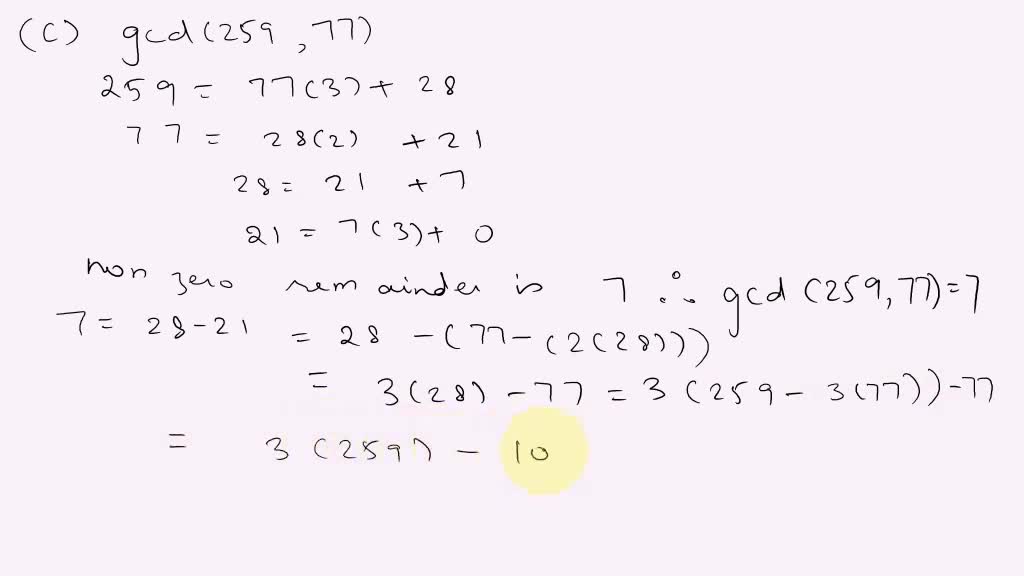 (C) gcd(259, 77)
259 = 77(3) + 28
77 = 28(2) + 21
28 = 21 + 7
21 = 7(3) + 0
non zero remainder is 7 ∴ gcd(259, 77) = 7
7 = 28 - 21 = 28 - (77 - (2(28)))
= 3(28) - 77 = 3(259 - 3(77)) - 77
= 3(259) - 10